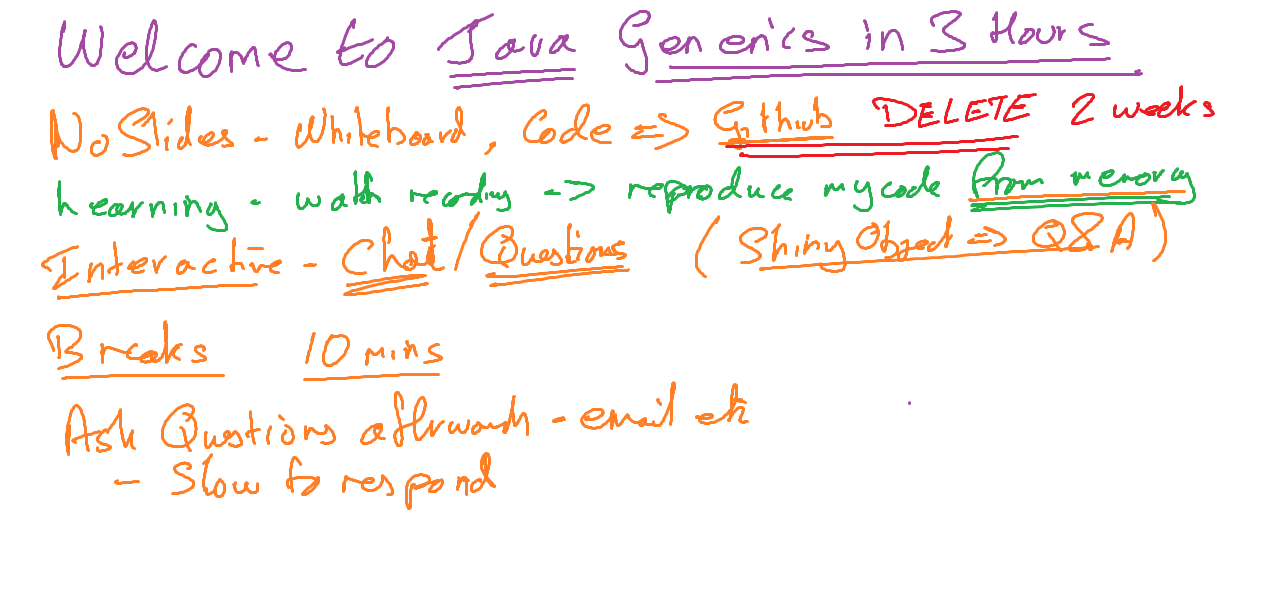 Welcome to Java Generics in 3 Hours
No Slides - Whiteboard, Code => Github DELETE 2 weeks
Learning - watch recording -> reproduce my code from memory
Interactive - Chat / Questions (Shiny Object => Q&A)
Breaks 10 mins
Ask Questions afterwards - email etc
- Slow to respond